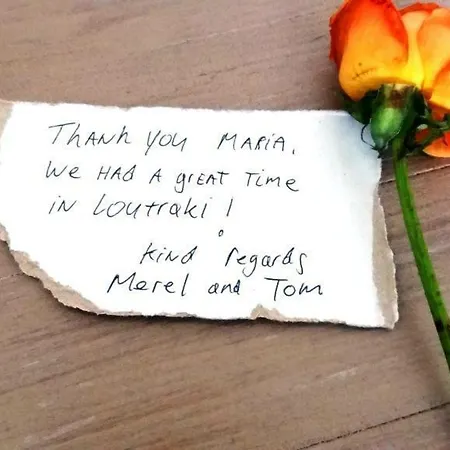 THANK YOU MARIA,
WE HAD A gREAT TIME
IN LOUTRAKI!
KIND regards
Merel and Tom